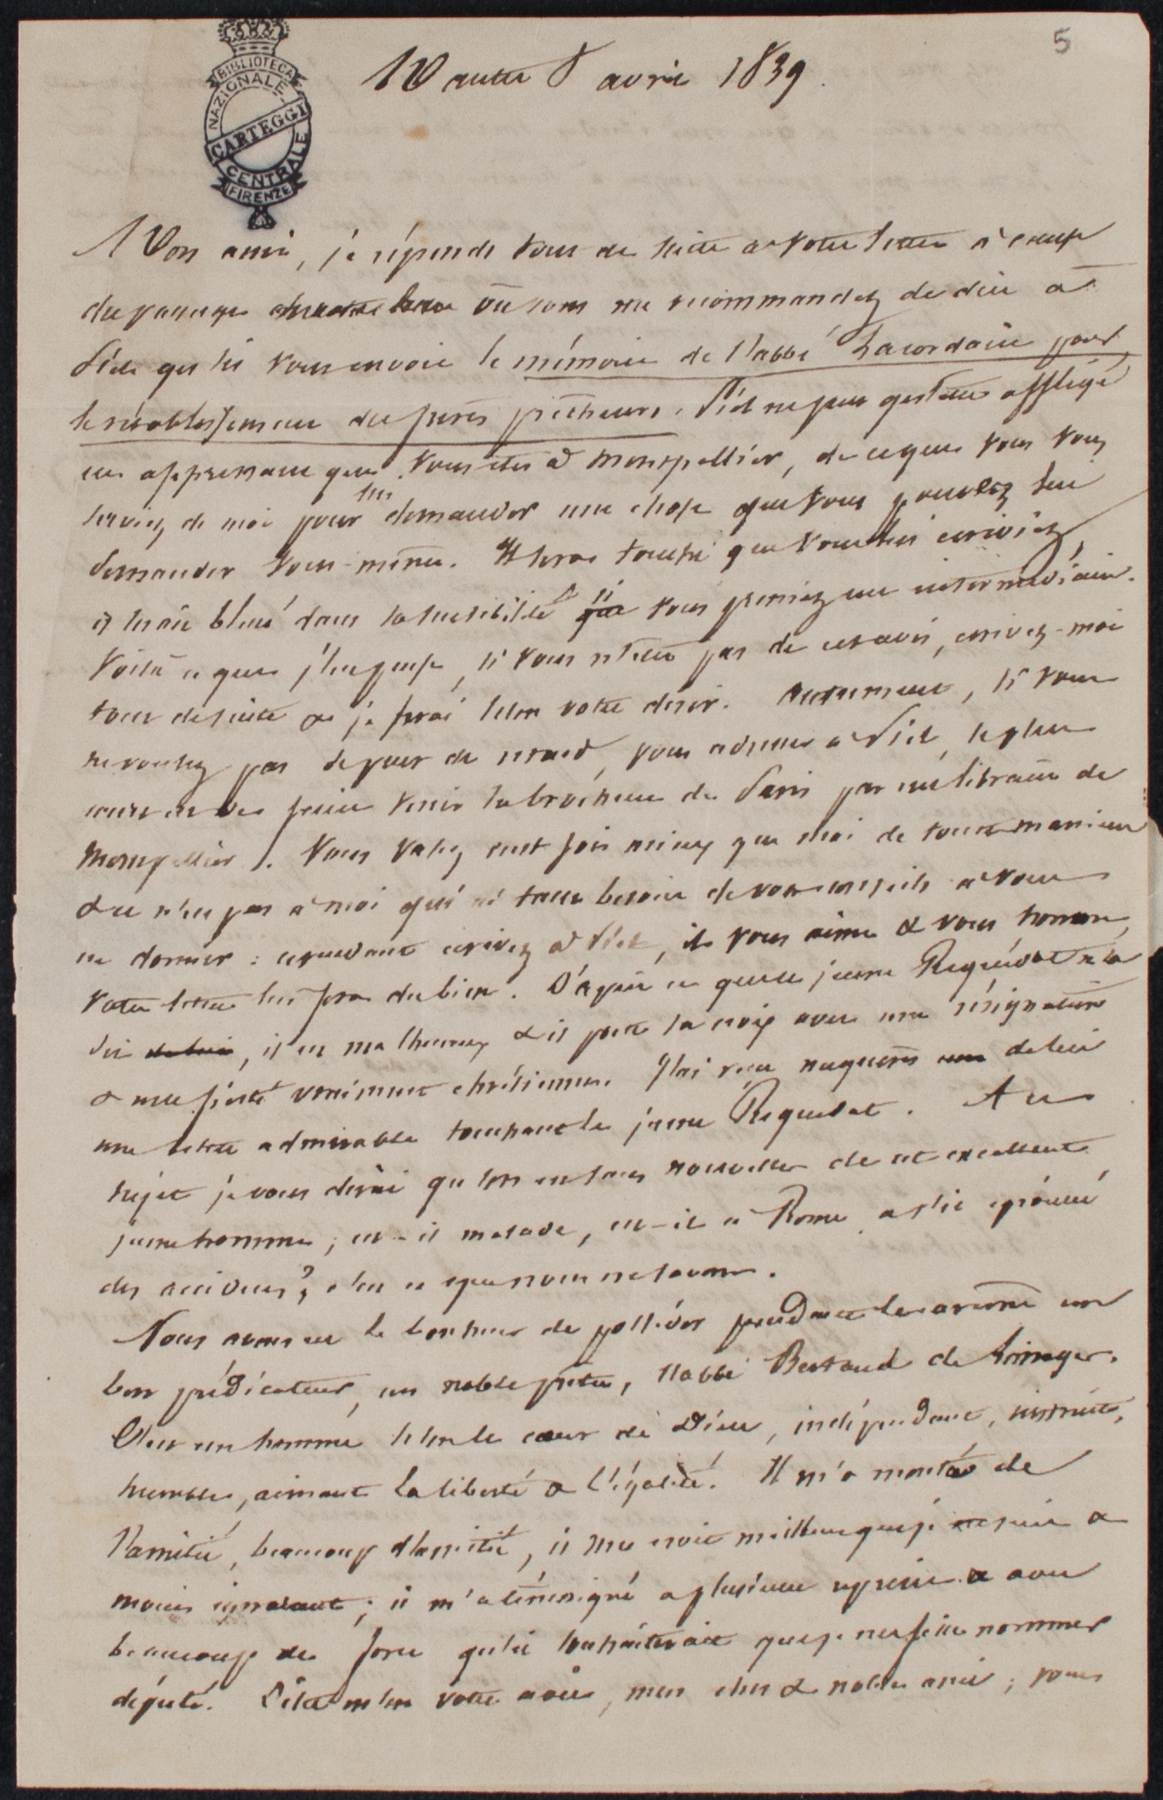 5
BIBLIOTECA
NAZIONALE
CARTEGGI
CENTRALE
FIRENZE
Nantes 8 avril 1839.
Mon ami, je réponds tout de suite à votre lettre à cause
du passage où vous me recommandez de dire à
Piel qu'il vous envoie le mémoire de l'abbé Lacordaire pour
le rétablissement des frères prêcheurs. Piel ne peut qu'être affligé
en apprenant que vous êtes à Montpellier, de ce que vous vous
serviez de moi pour lui demander une chose que vous pouvez lui
demander vous-même. Il sera touché que vous lui écriviez,
il serait blessé dans sa sensibilité si vous preniez un intermédiaire.
Voilà ce que j'en pense, si vous n'êtes pas de cet avis, écrivez-moi
tout de suite et je ferai selon votre désir. Autrement, si vous
ne voulez pas de vous adresser à Piel, le plus
court est de faire venir la brochure de Paris par un libraire de
Montpellier. Vous valez cent fois mieux que moi de toute manière
et ce n'est pas à moi qui ai tant besoin de vos conseils à vous
en donner : cependant écrivez à Piel, il vous aime & vous honore,
votre lettre lui fera du bien. D'après ce que le jeune Requédat m'a
dit, il est malheureux & il porte sa croix avec une résignation
& une fierté vraiment chrétienne. J'ai reçu naguères de lui
une lettre admirable touchant le jeune Requédat. A ce
sujet je vous dirai qu'on est sans nouvelles de cet excellent
jeune homme ; est-il malade, est-il à Rome, a-t-il éprouvé
des accidens ? c'est ce que nous ne savons.
Nous avons eu le bonheur de posséder pendant le carême un
bon prédicateur, un noble prêtre, l'abbé Bertaud de Limoges.
C'est un homme selon le cœur de Dieu, indépendant, instruit,
humble, aimant la liberté & l'égalité. Il m'a montré de
l'amitié, beaucoup d'amitié, il me croit meilleur que je ne suis &
moins ignorant ; il m'a témoigné à plusieurs reprises & avec
beaucoup de force qu'il souhaiterait que je me fisse nommer
député. Telle n'est votre avis, mon cher & noble ami ; vous